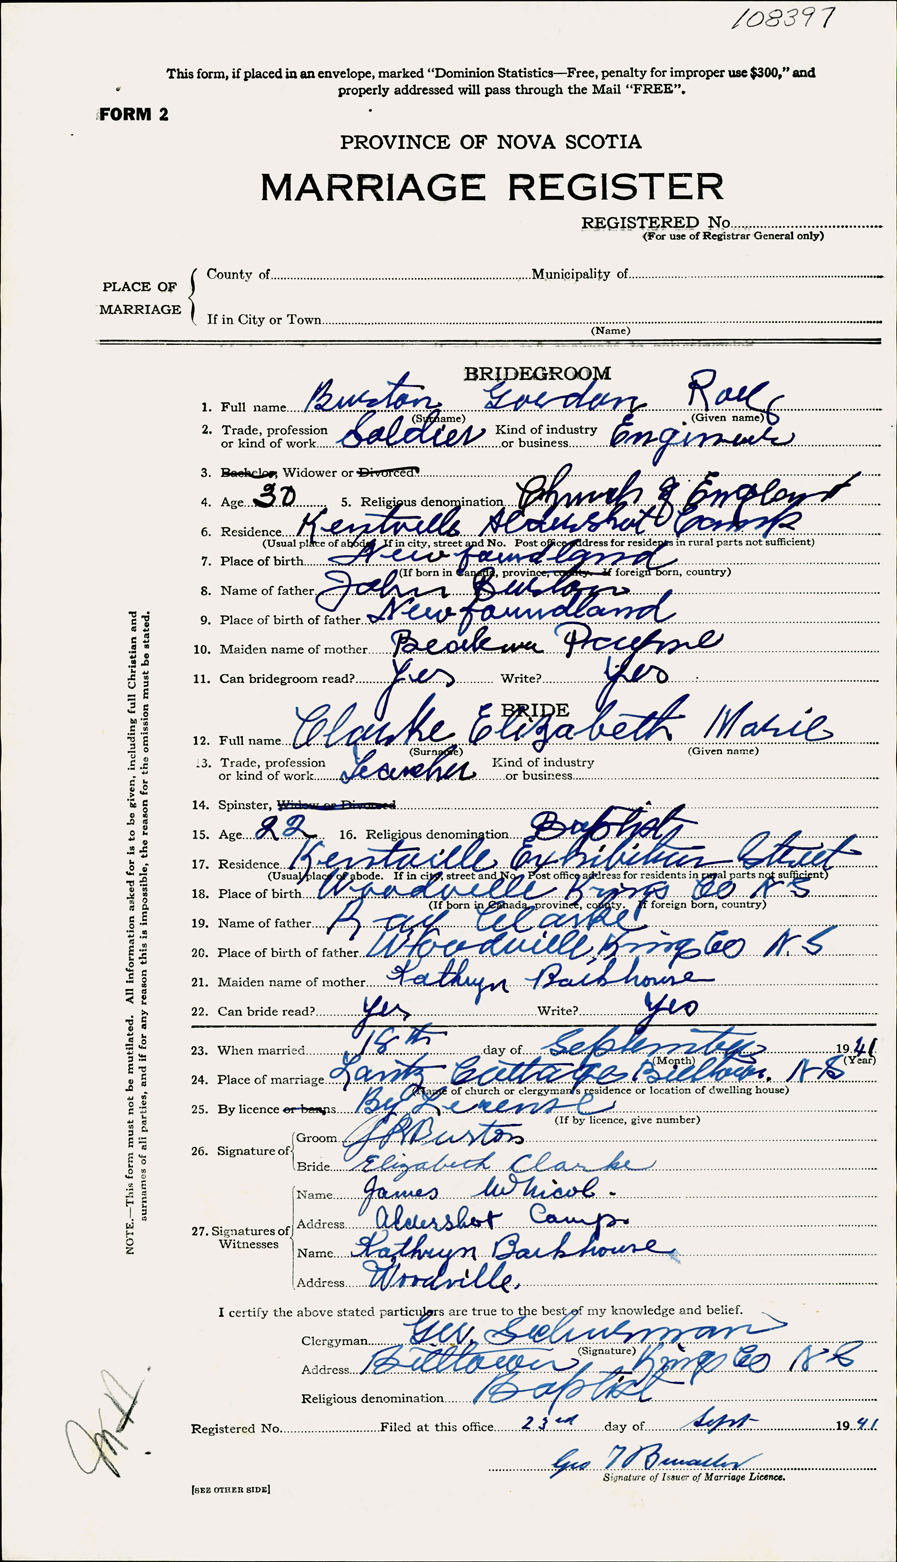 108397
This form, if placed in an envelope, marked “Dominion Statistics—Free, penalty for improper use $300,” and
properly addressed will pass through the Mail “FREE”.
FORM 2
PROVINCE OF NOVA SCOTIA
MARRIAGE REGISTER
REGISTERED No.
(For use of Registrar General only)
PLACE OF MARRIAGE
County of Municipality of
If in City or Town
(Name)
BRIDEGROOM
1. Full name Burton Gordon Roy
(Surname) (Given name)
2. Trade, profession or kind of work Soldier Kind of industry or business Engineer
3. Bachelor, Widower or Divorced
4. Age 30 5. Religious denomination Church of England
6. Residence Kentville Aldershot Camp
(Usual place of abode. If in city, street and No. Post office address for residents in rural parts not sufficient)
7. Place of birth Newfoundland
(If born in Canada, province, county. If foreign born, country)
8. Name of father John Burton
9. Place of birth of father Newfoundland
10. Maiden name of mother Payne
11. Can bridegroom read? Yes Write? Yes
BRIDE
12. Full name Clarke Elizabeth Marie
(Surname) (Given name)
13. Trade, profession or kind of work Teacher Kind of industry or business
14. Spinster, Widow or Divorced
15. Age 22 16. Religious denomination Baptist
17. Residence Kentville Exhibition Street
(Usual place of abode. If in city, street and No. Post office address for residents in rural parts not sufficient)
18. Place of birth Woodville Kings Co N S
(If born in Canada, province, county. If foreign born, country)
19. Name of father Ray Clarke
20. Place of birth of father Woodville, Kings Co N. S
21. Maiden name of mother Kathryn Barkhouse
22. Can bride read? Yes Write? Yes
23. When married 18th day of September 1941
(Month) (Year)
24. Place of marriage Lantz Cottage Billtown, N S
(Name of church or clergyman's residence or location of dwelling house)
25. By licence or banns By License
(If by licence, give number)
26. Signature of Groom Burton
Bride Elizabeth Clarke
27. Signatures of Witnesses
Name James McNicol.
Address Aldershot Camp.
Name Kathryn Barkhouse
Address Woodville.
I certify the above stated particulars are true to the best of my knowledge and belief.
Clergyman Geo. Schurman
(Signature)
Address Billtown Kings Co N S
Religious denomination Baptist
Registered No. Filed at this office 23rd day of Sept 1941
Geo
Signature of Issuer of Marriage Licence.
[SEE OTHER SIDE]
NOTE.—This form must not be mutilated. All information asked for is to be given, including full Christian and
surnames of all parties, and if for any reason this is impossible, the reason for the omission must be stated.